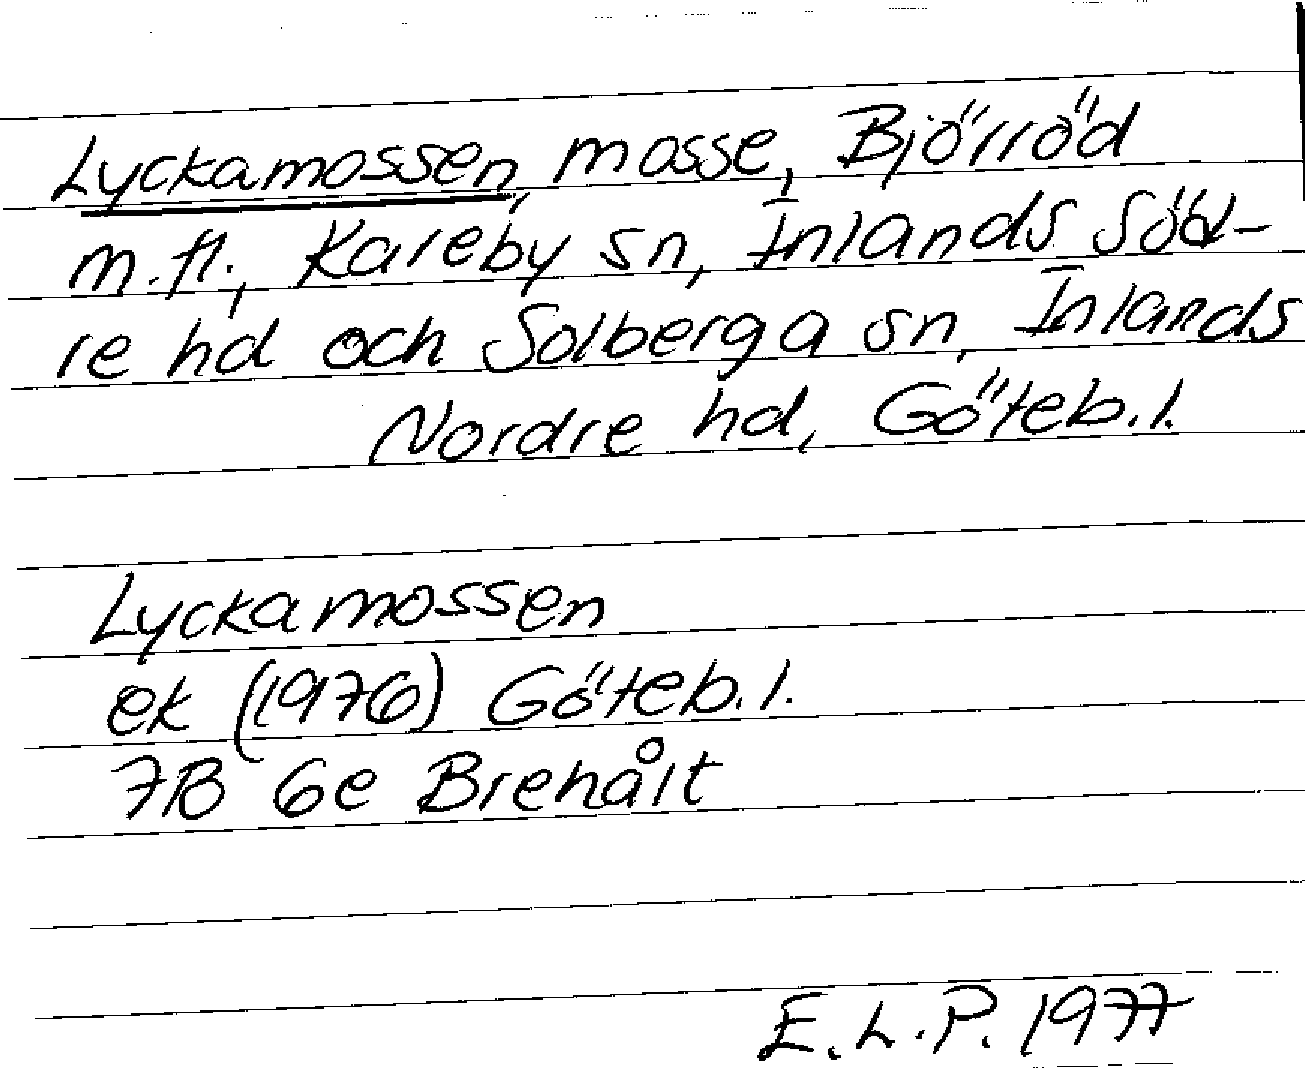 Lyckamossen, mosse, Björröd
m.fl., Kareby sn, Inlands Söd-
re hd och Solberga sn, Inlands
Nordre hd, Göteb.l.
Lyckamossen
ek (1976) Göteb.l.
7B 6e Brehålt
E.L.P. 1977